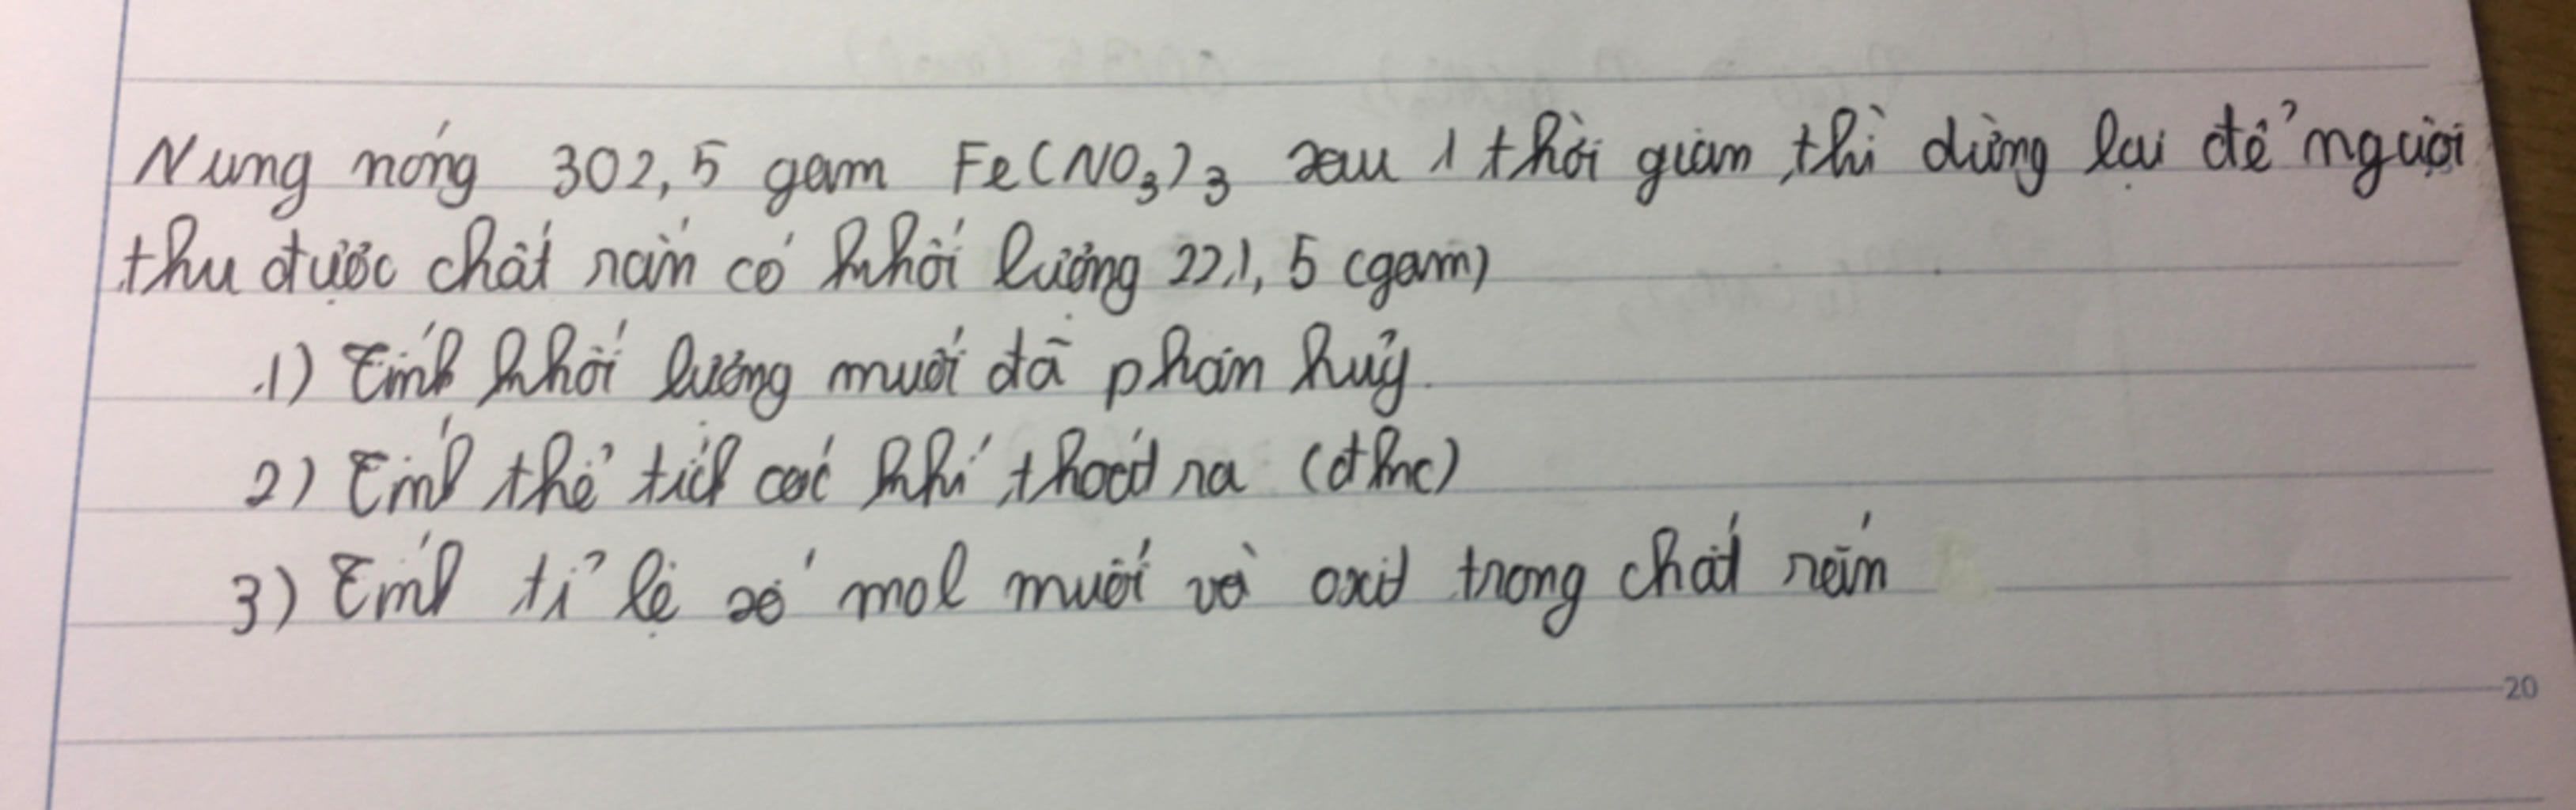 Nung nóng 302,5 gam Fe(NO3)3 sau 1 thời gian thì dừng lại để nguội
thu được chất rắn có khối lượng 221,5 (gam)
1) Tính khối lượng muối đã phân huỷ.
2) Tính thể tích các khí thoát ra (đktc)
3) Tính tỉ lệ số mol muối và oxit trong chất rắn
20